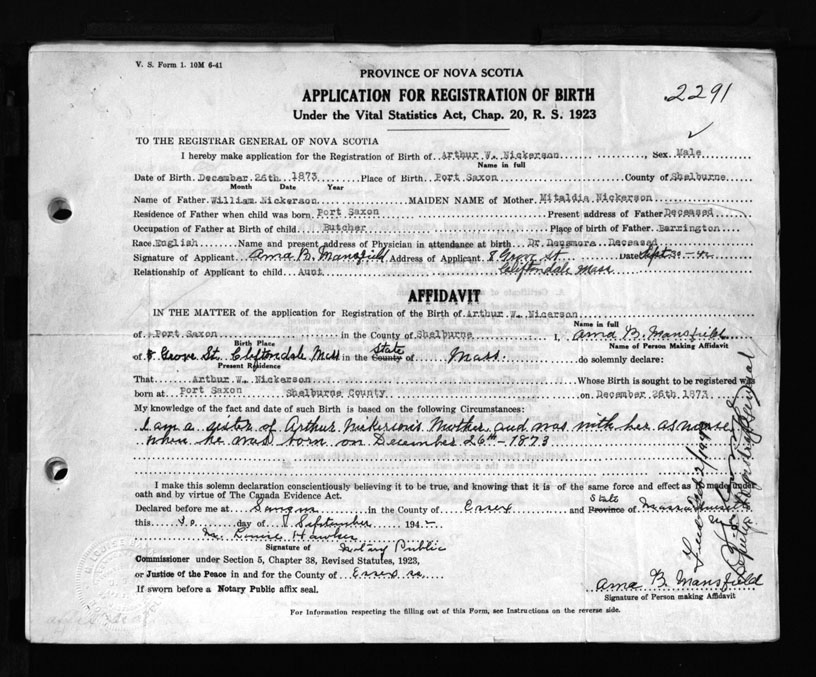 V. S. Form 1. 10M 6-41
PROVINCE OF NOVA SCOTIA
APPLICATION FOR REGISTRATION OF BIRTH
2291
Under the Vital Statistics Act, Chap. 20, R. S. 1923
TO THE REGISTRAR GENERAL OF NOVA SCOTIA
I hereby make application for the Registration of Birth of Arthur W. Nickerson, Sex Male
Name in full
Date of Birth December 26th 1873 Place of Birth Port Saxon County of Shelburne
Month Date Year
Name of Father William Nickerson MAIDEN NAME of Mother Mitaldia Nickerson
Residence of Father when child was born Port Saxon Present address of Father Deceased
Occupation of Father at Birth of child Butcher Place of Birth of Father Barrington
Race English Name and present address of Physician in attendance at birth Dr. Densmore Deceased
Signature of Applicant Ama B. Mansfield Address of Applicant 8 Grove St Date Sept 30-42
Relationship of Applicant to child Aunt Cliftondale Mass
AFFIDAVIT
IN THE MATTER of the application for Registration of the Birth of Arthur W. Nicerson
Name in full
of Port Saxon in the County of Shelburne I, Ama B. Mansfield
Birth Place Name of Person Making Affidavit
of 8 Grove St. Cliftondale Mass in the County State of Mass. do solemnly declare:
Present Residence
That Arthur W. Nickerson Whose Birth is sought to be registered was
born at Port Saxon Shelburne County on December 26th 1873
My knowledge of the fact and date of such Birth is based on the following Circumstances:
I am a sister of Arthur Nickerson's Mother and was with her as nurse
when he was born on December 26th - 1873
I make this solemn declaration conscientiously believing it to be true, and knowing that it is of the same force and effect as if made under
oath and by virtue of The Canada Evidence Act.
Declared before me at Saugus in the County of Essex and Province State of Massachusetts
this 30 day of September 1942
M. Louise Hawkes
Signature of Notary Public
Commissioner under Section 5, Chapter 38, Revised Statutes, 1923,
or Justice of the Peace in and for the County of Essex ss
If sworn before a Notary Public affix seal.
Ama B. Mansfield
Signature of Person making Affidavit
For Information respecting the filling out of this Form, see Instructions on the reverse side.